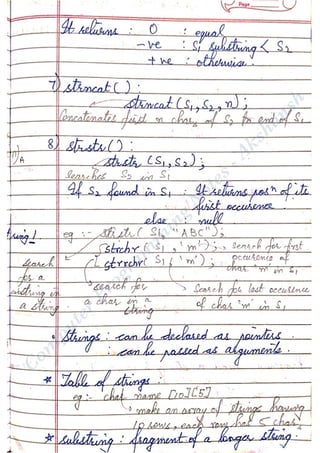 Page
It returns : 0 : equal
-ve : S1 substring < S2
+ve : otherwise.
7) strncat() :
strncat (S1, S2, n);
Concatenates first n chars of S2 to end of S1.
8) strstr() :
strstr (S1, S2);
searches S2 in S1
If S2 found in S1 : It returns posn of its
first occurence
else : null
eg :- strstr( S1, "ABC");
strchr( S1, 'm'); → search for first
occurence of
char 'm' in S1
strrchr( S1, 'm');
search
for a
substring in
a string
search for
a char in a
string
search for last occurence
of char 'm' in S1
• Strings : can be declared as pointers.
: can be passed as arguments.
* Table of strings :
eg:- char name [10][5]
make an array of strings having
10 rows, each row has 5 char.
* substring : fragment of a longer string.